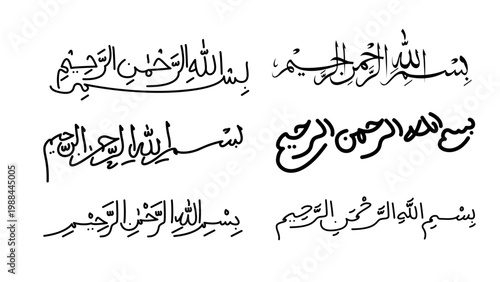 بِسْمِ اللهِ الرَّحْمٰنِ الرَّحِيْمِ
بسم الله الرحمن الرحيم
بسم الله الرحمن الرحيم
بسم الله الرحمن الرحيم
بِسْمِ اللهِ الرَّحْمٰنِ الرَّحِيْمِ
بِسْمِ اللَّهِ الرَّحْمٰنِ الرَّحِيمِ
Adobe Stock | #1988445005